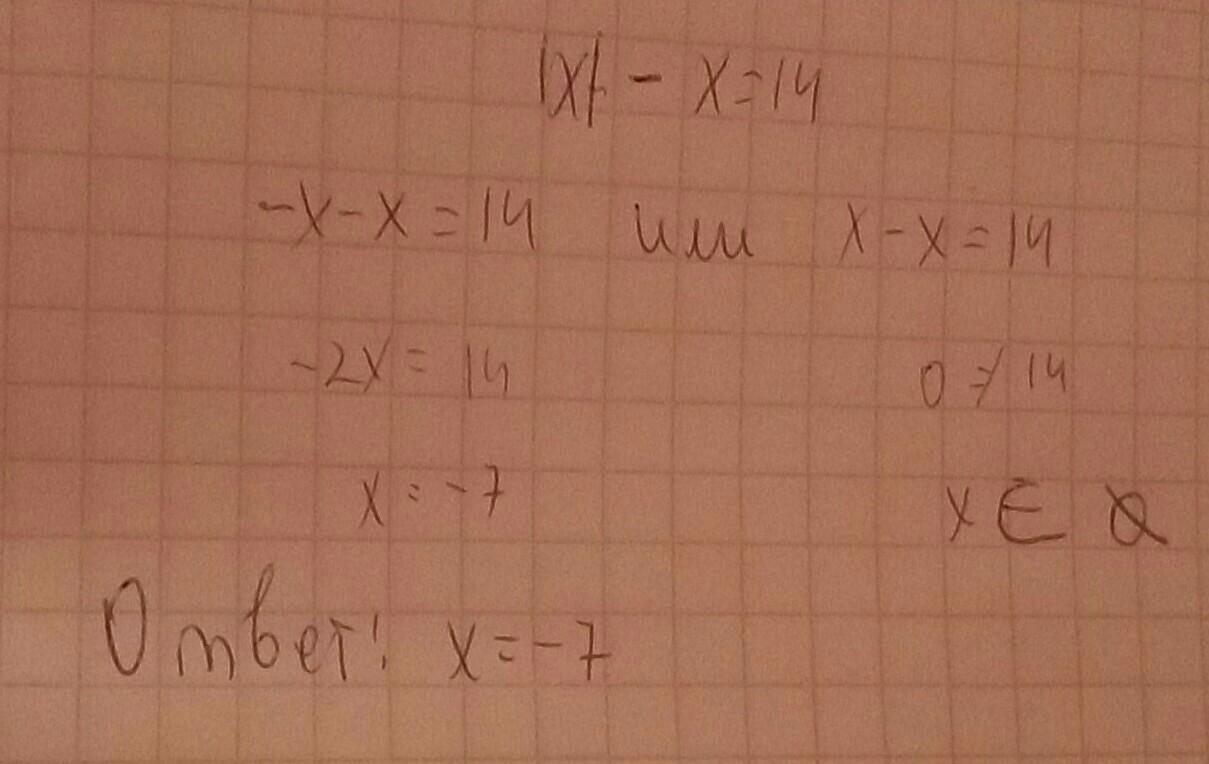 |x| - x = 14
-x - x = 14 или x - x = 14
-2x = 14 0 ≠ 14
x = -7 x ∈ ∅
Ответ: x = -7